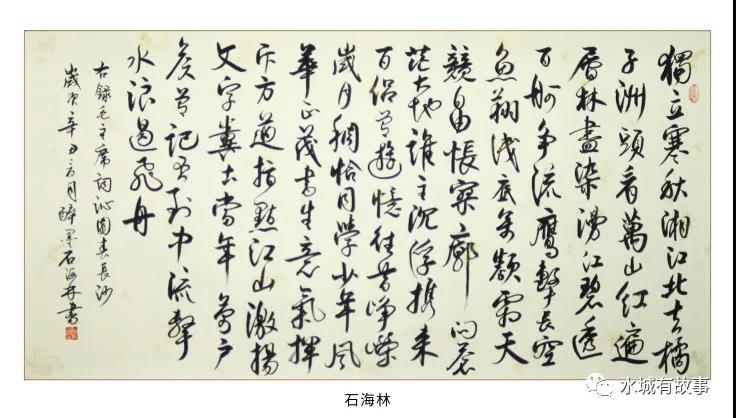 獨立寒秋湘江北去橘
子洲頭看萬山红遍
層林盡染漫江碧透
百舸争流鷹擊長空
魚翔浅底萬類霜天
競自由悵寥廓问蒼
茫大地誰主沉浮携来
百侣曾遊憶往昔峥嶸
歲月稠恰同學少年風
華正茂书生意氣揮
斥方遒指點江山激揚
文字糞土當年萬户
侯曾记否到中流擊
水浪遏飛舟
右録毛主席詞沁園春長沙
歲次辛丑月醉墨石海林書
石海林
水城有故事